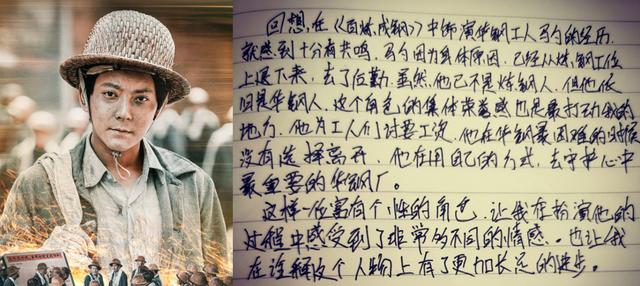 回想在《百炼成钢》中饰演华钢工人马勺的经历,
就感到十分有共鸣,马勺因为身体原因,已经从炼钢工位
上退下来,去了后勤,虽然他已不是炼钢人,但他依
旧是华钢人,这个角色的集体荣誉感也是最打动我的
地方,他为工人们讨要工资,他在华钢最困难的时候
没有选择离开,他在用自己的方式,去守护心中
最重要的华钢厂。
这样一位富有个性的角色,让我在扮演他的
过程中感受到了非常多不同的情感,也让我
在诠释这个人物上有了更加长足的进步。